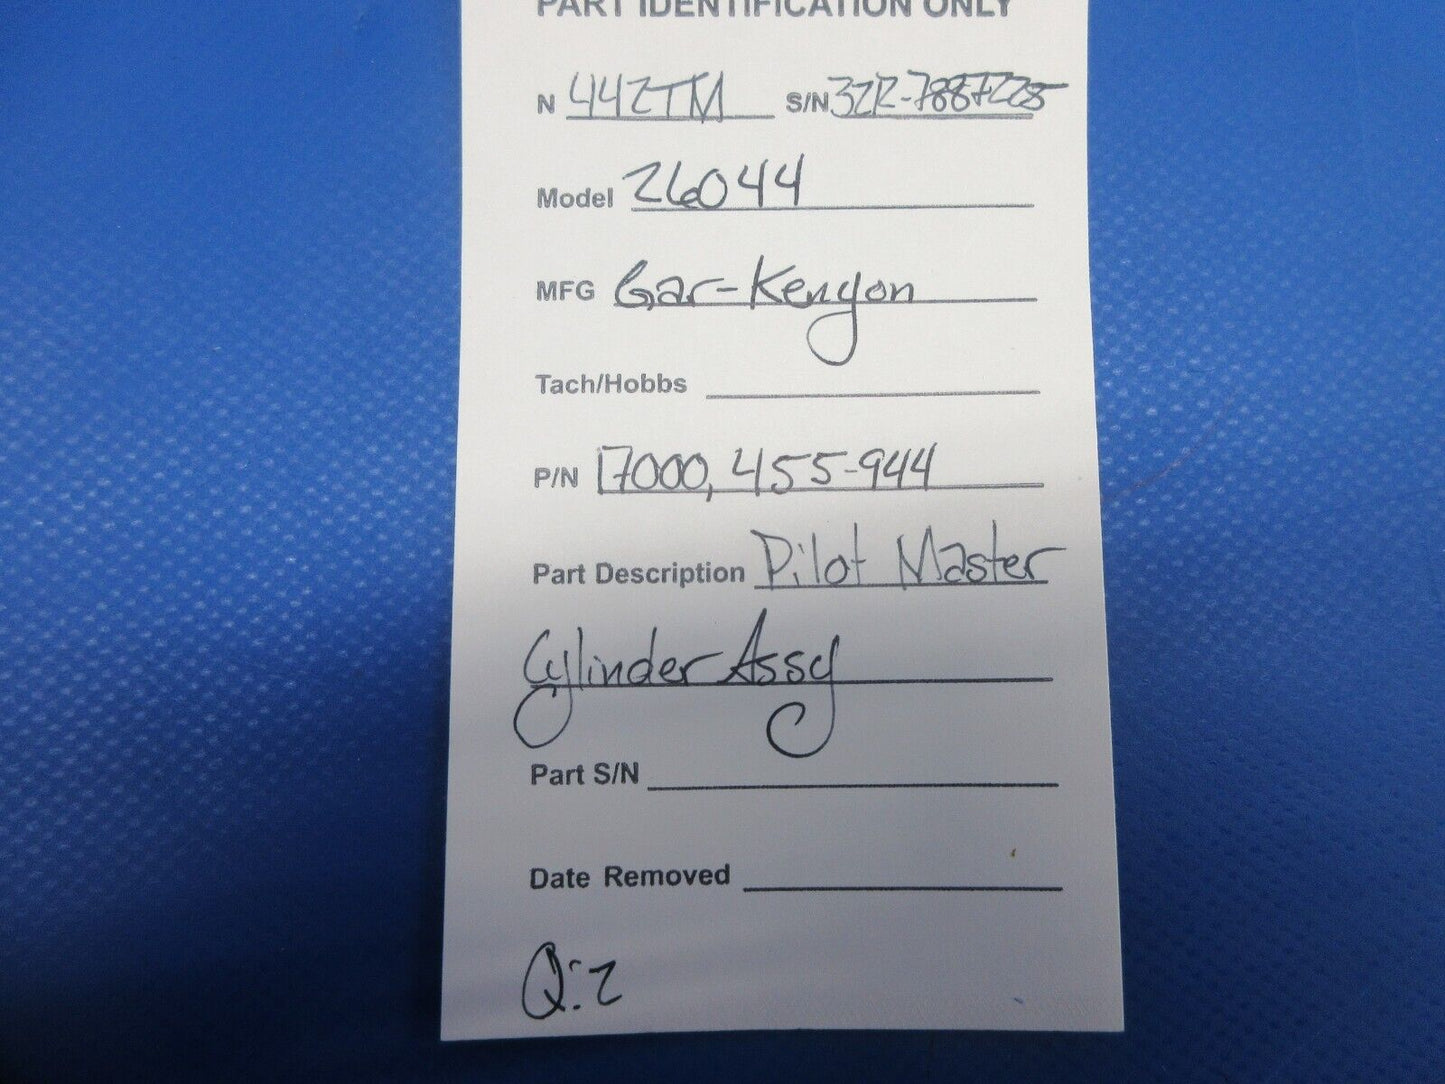 PART IDENTIFICATION ONLY
N 442TM S/N 32R-7887225
Model 26044
MFG Gar-Kenyon
Tach/Hobbs
P/N 17000, 455-944
Part Description Pilot Master
Cylinder Assy
Part S/N
Date Removed
Q:2